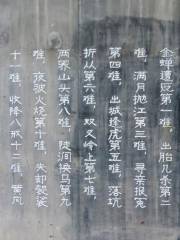 金蝉遭贬第一难，出胎几杀第二
难，满月抛江第三难，寻亲报冤
第四难，出城逢虎第五难，落坑
折从第六难，双叉岭上第七难，
两界山头第八难，陡涧换马第九
难，夜被火烧第十难，失却袈裟
十一难，收降八戒十二难，黄风